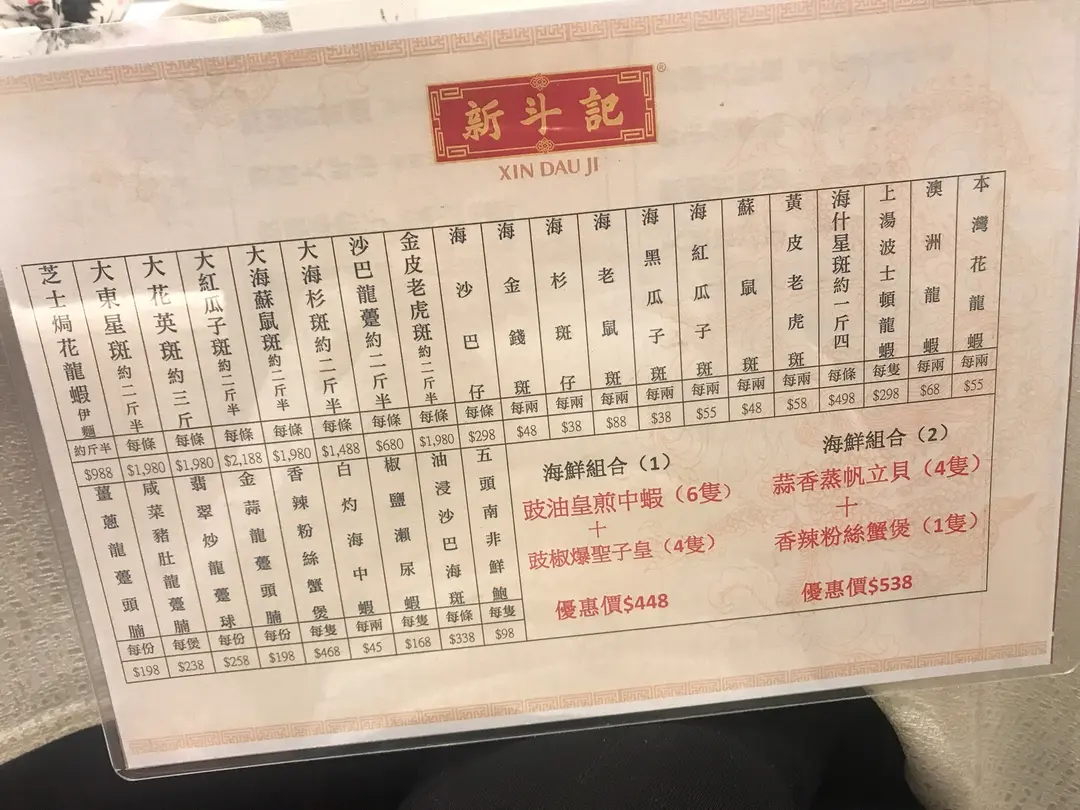 新斗記
®
XIN DAU JI
本灣花龍蝦
每兩
$55
澳洲龍蝦
每兩
$68
上湯波士頓龍蝦
每隻
$298
海什星斑約一斤四
每條
$498
黃皮老虎斑
每兩
$58
蘇鼠斑
每兩
$48
海紅瓜子斑
每兩
$55
海黑瓜子斑
每兩
$38
海老鼠斑
每兩
$88
海杉斑仔
每兩
$38
海金錢斑
每兩
$48
海沙巴仔
每條
$298
金皮老虎斑約二斤半
每條
$1,980
沙巴龍躉約二斤半
每條
$680
大海杉斑約二斤半
每條
$1,488
大海蘇鼠斑約二斤半
每條
$1,980
大紅瓜子斑約二斤半
每條
$2,188
大花英斑約三斤
每條
$1,980
大東星斑約二斤半
每條
$1,980
芝士焗花龍蝦伊麵
約斤半
$988
海鮮組合（2）
蒜香蒸帆立貝（4隻）
＋
香辣粉絲蟹煲（1隻）
優惠價$538
海鮮組合（1）
豉油皇煎中蝦（6隻）
＋
豉椒爆聖子皇（4隻）
優惠價$448
五頭南非鮮鮑
每隻
$98
油浸沙巴海斑
每條
$338
椒鹽瀨尿蝦
每隻
$168
白灼海中蝦
每兩
$45
香辣粉絲蟹煲
每隻
$468
金蒜龍躉頭腩
每份
$198
翡翠炒龍躉球
每份
$258
咸菜豬肚龍躉腩
每煲
$238
薑蔥龍躉頭腩
每份
$198